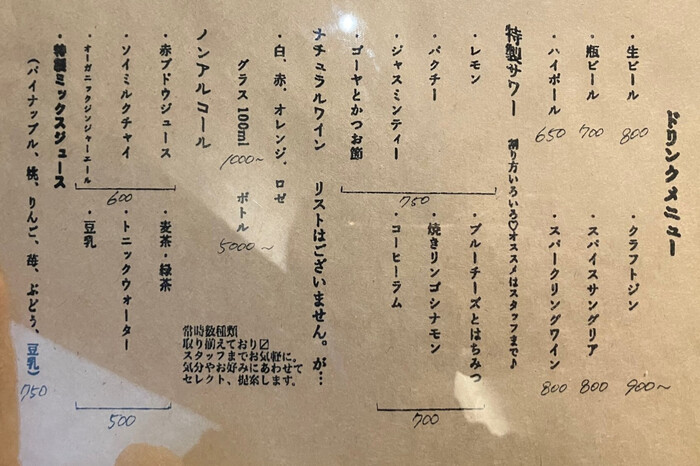 ドリンクメニュー
・生ビール 800
・瓶ビール 700
・ハイボール 650
・クラフトジン 900〜
・スパイスサングリア 800
・スパークリングワイン 800
特製サワー 割り方いろいろ♡オススメはスタッフまで♪
・レモン
・パクチー
・ジャスミンティー
・ゴーヤとかつお節
750
・ブルーチーズとはちみつ
・焼きリンゴシナモン
・コーヒーラム
700
ナチュラルワイン リストはございません。が…
・白、赤、オレンジ、ロゼ
グラス 100ml 1000〜 ボトル 5000〜
常時数種類
取り揃えており〼
スタッフまでお気軽に。
気分やお好みにあわせて
セレクト、提案します。
ノンアルコール
・赤ブドウジュース
・ソイミルクチャイ
・オーガニックジンジャーエール
600
・麦茶・緑茶
・トニックウォーター
・豆乳
500
・特製ミックスジュース
（パイナップル、桃、りんご、苺、ぶどう、豆乳）750